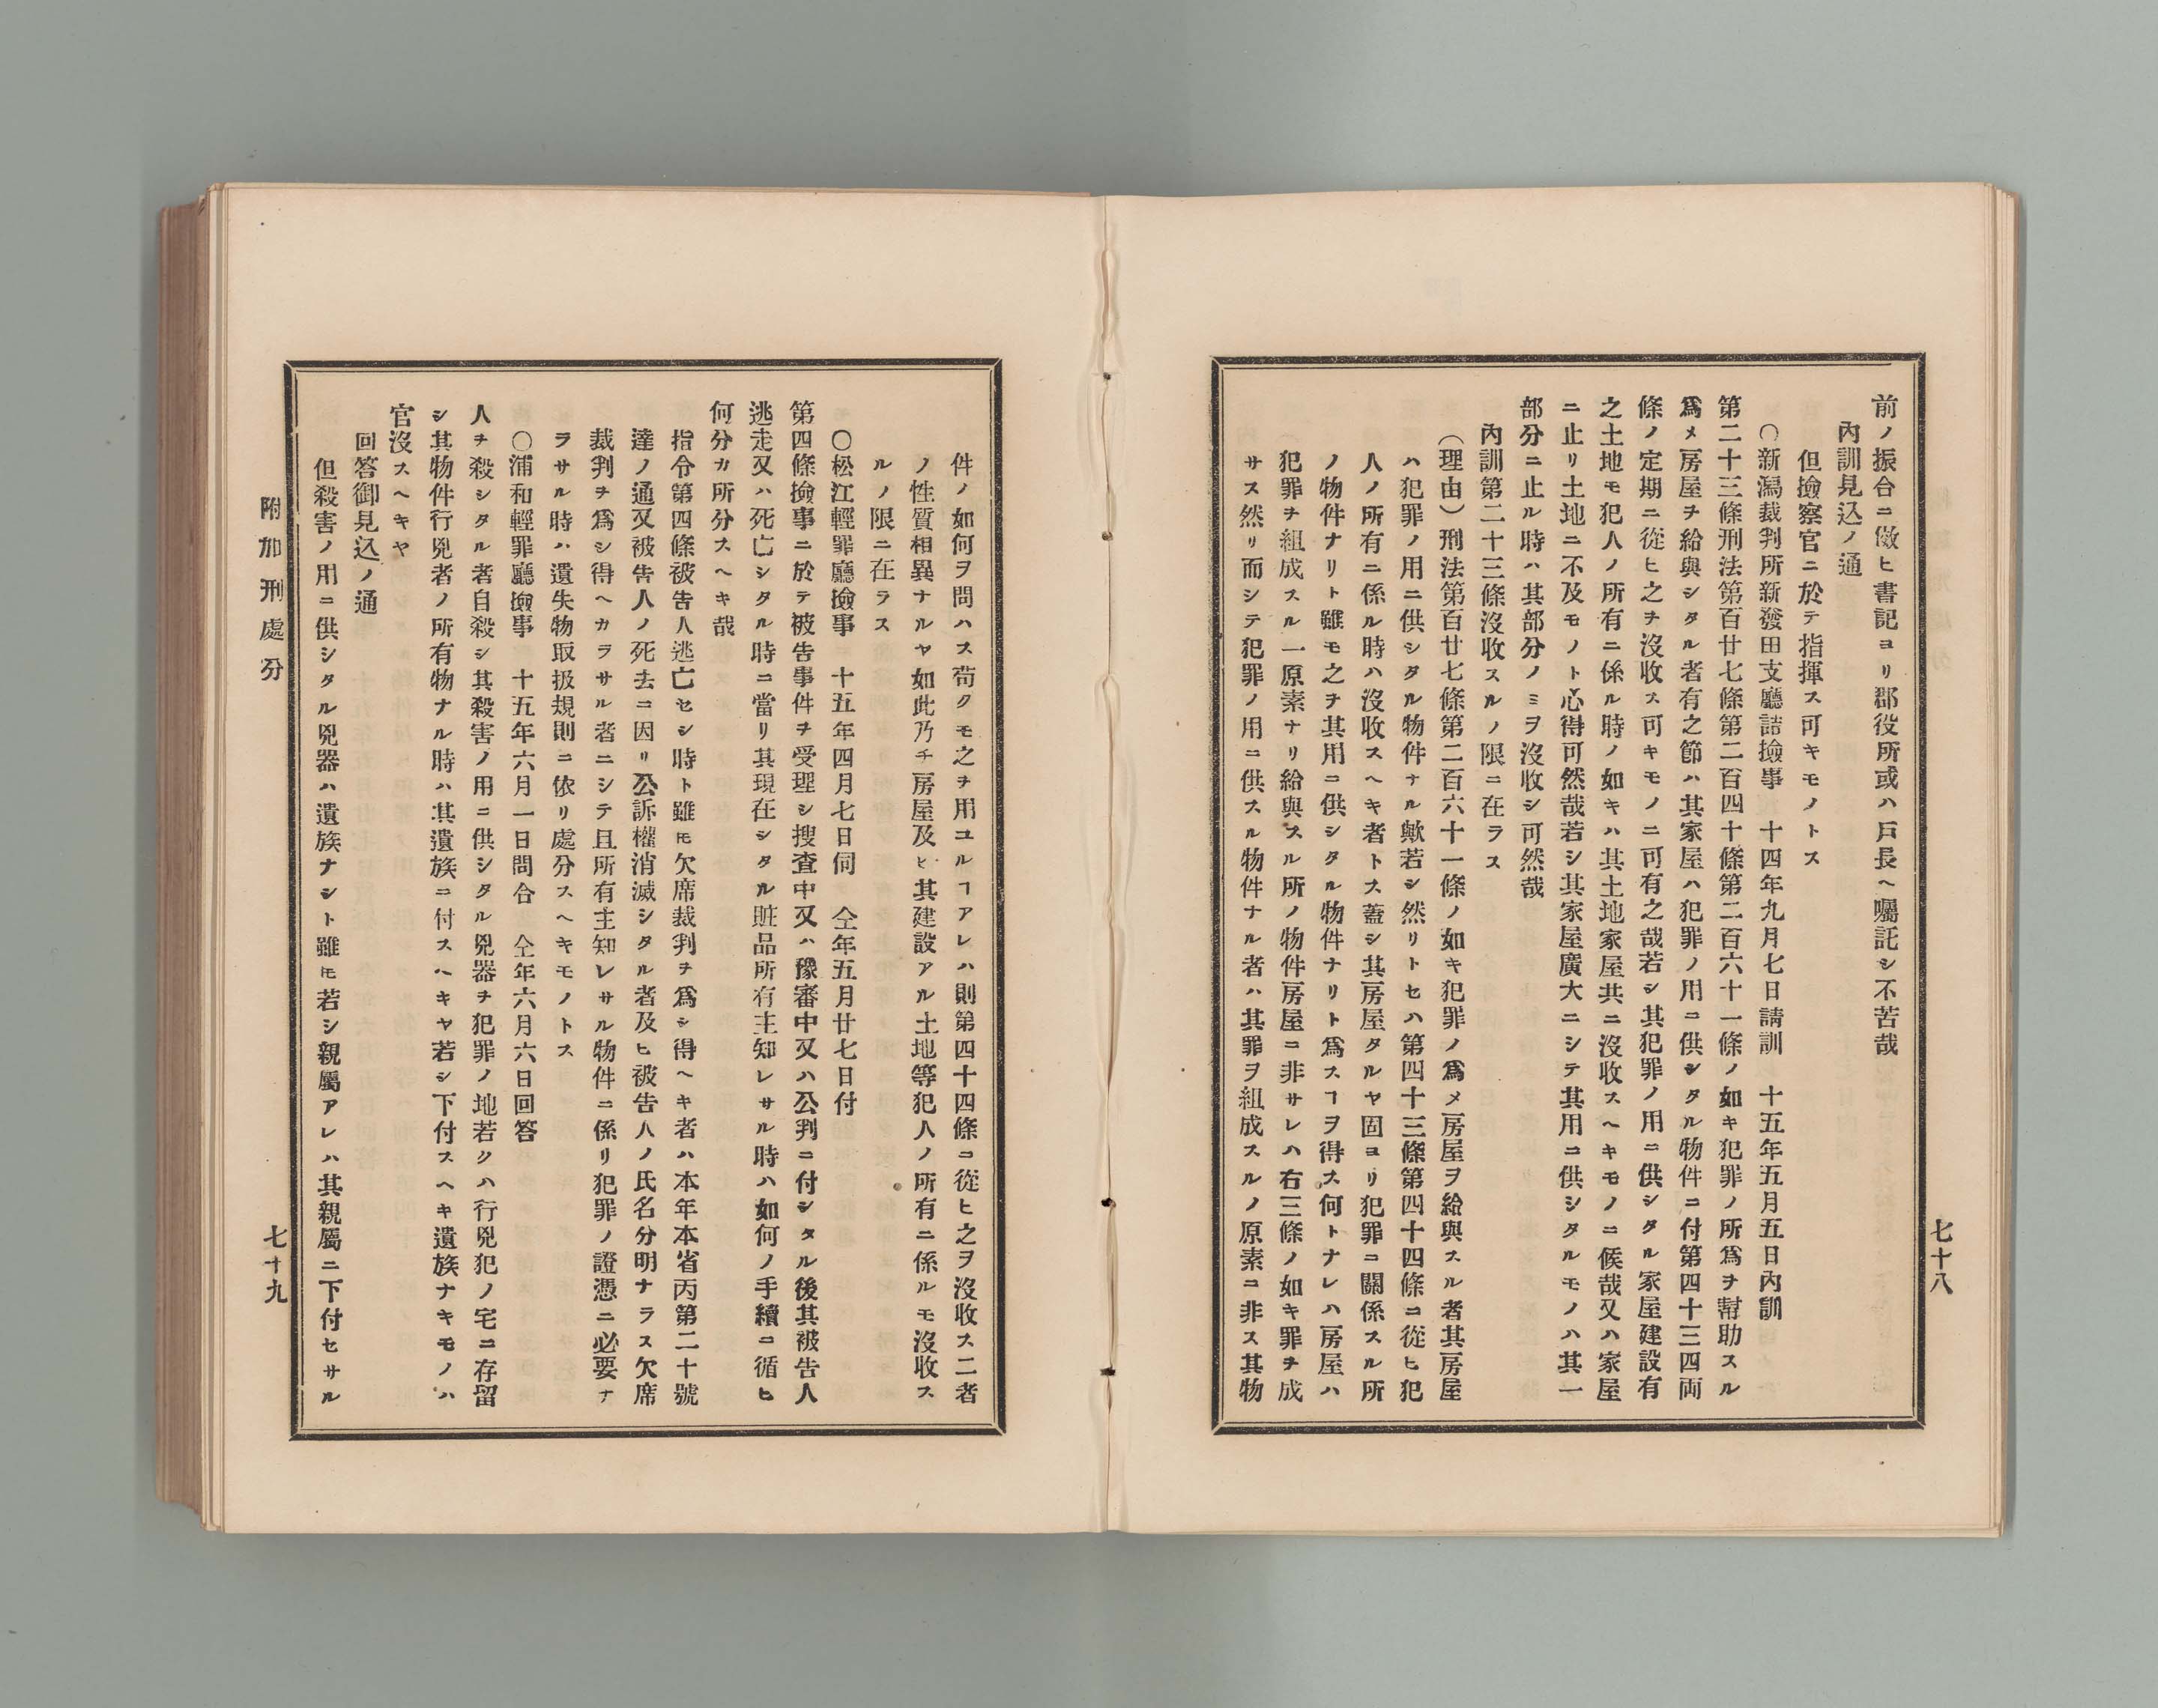 前ノ振合ニ傚ヒ書記ヨリ郡役所或ハ戸長ヘ囑託シ不苦哉
內訓見込ノ通
但撿察官ニ於テ指揮ス可キモノトス
〇新潟裁判所新發田支廳詰撿事 十四年九月七日請訓 十五年五月五日內訓
第二十三條刑法第百廿七條第二百四十條第二百六十一條ノ如キ犯罪ノ所爲ヲ幇助スル
爲メ房屋ヲ給與シタル者有之節ハ其家屋ハ犯罪ノ用ニ供シタル物件ニ付第四十三四両
條ノ定期ニ從ヒ之ヲ沒收ス可キモノニ可有之哉若シ其犯罪ノ用ニ供シタル家屋建設有
之土地モ犯人ノ所有ニ係ル時ノ如キハ其土地家屋共ニ沒收スヘキモノニ候哉又ハ家屋
ニ止リ土地ニ不及モノト心得可然哉若シ其家屋廣大ニシテ其用ニ供シタルモノハ其一
部分ニ止ル時ハ其部分ノミヲ沒收シ可然哉
內訓第二十三條沒收スルノ限ニ在ラス
(理由)刑法第百廿七條第二百六十一條ノ如キ犯罪ノ爲メ房屋ヲ給與スル者其房屋
ハ犯罪ノ用ニ供シタル物件ナル歟若シ然リトセハ第四十三條第四十四條ニ從ヒ犯
人ノ所有ニ係ル時ハ沒收スヘキ者トス蓋シ其房屋タルヤ固ヨリ犯罪ニ關係スル所
ノ物件ナリト雖モ之ヲ其用ニ供シタル物件ナリト爲スヿヲ得ス何トナレハ房屋ハ
犯罪ヲ組成スル一原素ナリ給與スル所ノ物件房屋ニ非サレハ右三條ノ如キ罪ヲ成
サス然リ而シテ犯罪ノ用ニ供スル物件ナル者ハ其罪ヲ組成スルノ原素ニ非ス其物
七十八
件ノ如何ヲ問ハス苟クモ之ヲ用ユルヿアレハ則第四十四條ニ從ヒ之ヲ沒收ス二者
ノ性質相異ナルヤ如此乃チ房屋及ヒ其建設アル土地等犯人ノ所有ニ係ルモ沒收ス
ルノ限ニ在ラス
〇松江輕罪廳撿事 十五年四月七日伺 仝年五月廿七日付
第四條撿事ニ於テ被告事件ヲ受理シ搜査中又ハ豫審中又ハ公判ニ付シタル後其被告人
逃走又ハ死亡シタル時ニ當リ其現在シタル贓品所有主知レサル時ハ如何ノ手續ニ循ヒ
何分カ所分スヘキ哉
指令第四條被告人逃亡セシ時ト雖モ欠席裁判ヲ爲シ得ヘキ者ハ本年本省丙第二十號
達ノ通又被告人ノ死去ニ因リ公訴權消滅シタル者及ヒ被告人ノ氏名分明ナラス欠席
裁判ヲ爲シ得ヘカラサル者ニシテ且所有主知レサル物件ニ係リ犯罪ノ證憑ニ必要ナ
ラサル時ハ遺失物取扱規則ニ依リ處分スヘキモノトス
〇浦和輕罪廳撿事 十五年六月一日問合 仝年六月六日回答
人ヲ殺シタル者自殺シ其殺害ノ用ニ供シタル兇器ヲ犯罪ノ地若クハ行兇犯ノ宅ニ存留
シ其物件行兇者ノ所有物ナル時ハ其遺族ニ付スヘキヤ若シ下付スヘキ遺族ナキモノハ
官沒スヘキヤ
回答御見込ノ通
但殺害ノ用ニ供シタル兇器ハ遺族ナシト雖モ若シ親屬アレハ其親屬ニ下付セサル
附加刑處分
七十九